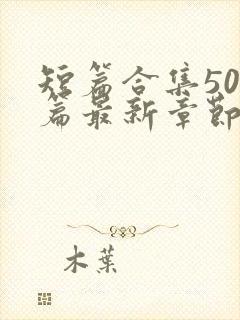 短篇合集50
篇最新章節
木葉